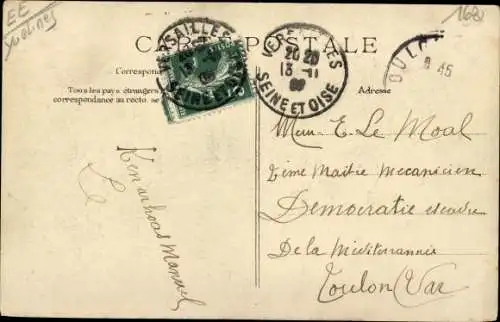 EE
Yvelines
CARTE POSTALE
Correspond
Tous les pays étrangers
correspondance au recto. se
Adresse
VERSAILLES
SEINE ET OISE
VERSAILLES
20 20
13 -11
09
SEINE ET OISE
TOULON
8 45
Monr E. Le Moal
2ème Maître Mecanicien
Democratie escadre
De la Méditerrannée
Toulon (Var